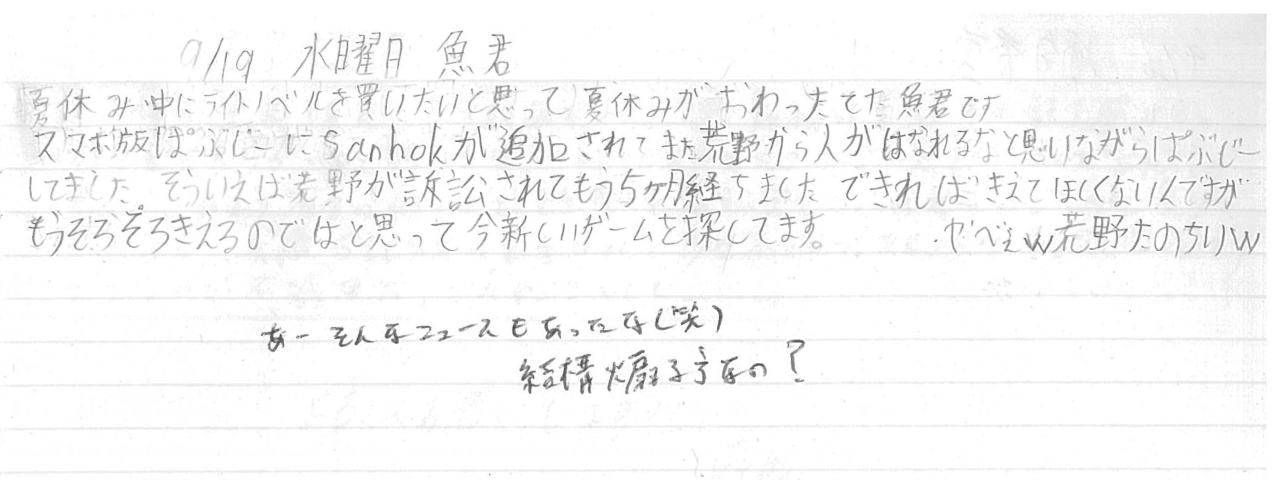 9/19 水曜日 魚君
夏休み中にライトノベルを買いたいと思って夏休みがおわったてた魚君です
スマホ版ぱぶじーにSanhokが追加されてまた荒野から人がはなれるなと思いながらぱぶじー
してました。そういえば荒野が訴訟されてもう5ヶ月経ちました できればきえてほしくないんですが
もうそろそろきえるのではと思って今新しいゲームを探してます。 やべぇw荒野たのちりw
あーそんなニュースもあったな(笑)
結構煽る子なの?